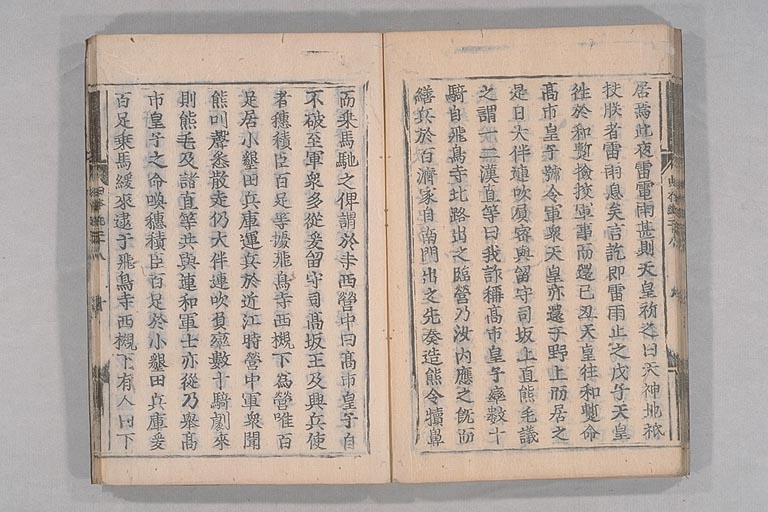 居焉此夜雷電雨甚則天皇祈之曰天神地祇
扶朕者雷雨息矣言訖即雷雨止之戊子天皇
徃於和蹔檢挍軍事而還己丑天皇往和蹔命
髙市皇子號令軍衆天皇亦還于野上而居之
是日大伴連吹負密與留守司坂上直熊毛議
之謂一二漢直等曰我詐稱髙市皇子率數十
騎自飛鳥寺北路出之臨營乃汝内應之旣而
繕兵於百濟家自南門出之先秦造熊令犢鼻
而乘馬馳之俾謂於寺西營中曰髙市皇子自
不破至軍衆多從爰留守司髙坂王及興兵使
者穗積臣百足等據飛鳥寺西槻下爲營唯百
足居小墾田兵庫運兵於近江時營中軍衆聞
熊叫聲悉散走仍大伴連吹負率數十騎劇來
則熊毛及諸直等共與連和軍士亦從乃舉髙
市皇子之命喚穗積臣百足於小墾田兵庫爰
百足乘馬緩來逮于飛鳥寺西槻下有人曰下